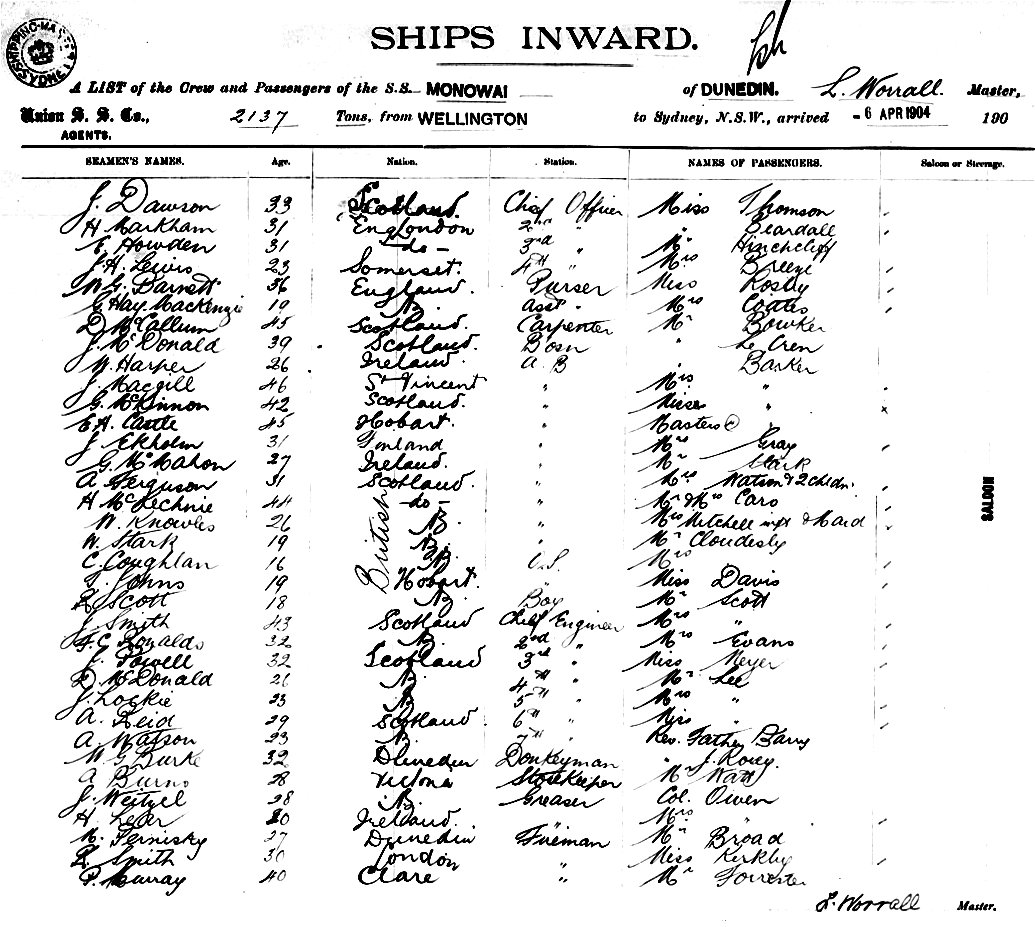 SHIPPING MASTER SYDNEY
SHIPS INWARD.
A LIST of the Crew and Passengers of the S.S. MONOWAI of DUNEDIN. L. Worrall. Master,
Union S. S. Co., AGENTS. 2137 Tons, from WELLINGTON to Sydney, N.S.W., arrived - 6 APR 1904 190
SEAMEN'S NAMES. Age. Nation. Station. NAMES OF PASSENGERS. Saloon or Steerage.
J. Dawson 33 Scotland. Chief Officer Miss Thomson
H Markham 31 England London 2nd " " Beardall
E. Howden 31 - do - 3rd " Mr Hinchcliff
J.H. Lewis 23 Somerset. 4th " Mrs Breeze
W G. Barnett 36 England Purser Miss Rosby
G. Hay Mackenzie 19 Asst " Mrs Coates
D McCallum 45 Scotland. Carpenter Mr Bowker
J. McDonald 39 Scotland. Bosn " Le Cren
W. Harper 26 Ireland A B " Barker
J. Macgill 46 St Vincent " Mrs "
G. McKinnon 42 Scotland. " Misses "
E.A. Castle 45 Hobart. " Masters
J. Ekholm 31 Finland " Mr Gray
G. McMahon 27 Ireland. " Mr Stark
A Ferguson 31 Scotland. " Mrs Watson & 2 childn.
H McKechnie 44 - do - " Mr & Mrs Caro
W. Knowles 26 British " Mrs Mitchell inft & Maid
W. Stark 19 " Mr Cloudesly
C. Coughlan 16 O.S. Mrs "
Johns 19 Hobart. " Miss Davis
Scott 18 Boy Mr Scott
J Smith 43 Scotland Chief Engineer Mrs "
C Ronalds 32 2nd " Mrs Evans
J. Powell 32 Scotland 3rd " Miss Meyer
D McDonald 21 4th " Mr Lee
J. Lockie 23 5th " Mrs "
A. Reid 29 Scotland 6th " Miss "
A Watson 23 7th " Rev. Father Barry
W G Burke 32 Dunedin Donkeyman "
A Burns 28 Victoria Storekeeper Mr Watt
J. Weitzel 28 Greaser Col. Owen
H Leer 20 Ireland. " Mrs "
M. Fernisky 27 Dunedin Fireman Mr Broad
Smith 30 London " Miss Kerkby
P. Murray 40 Clare " Mr Forrester
SALOON
L. Worrall Master.